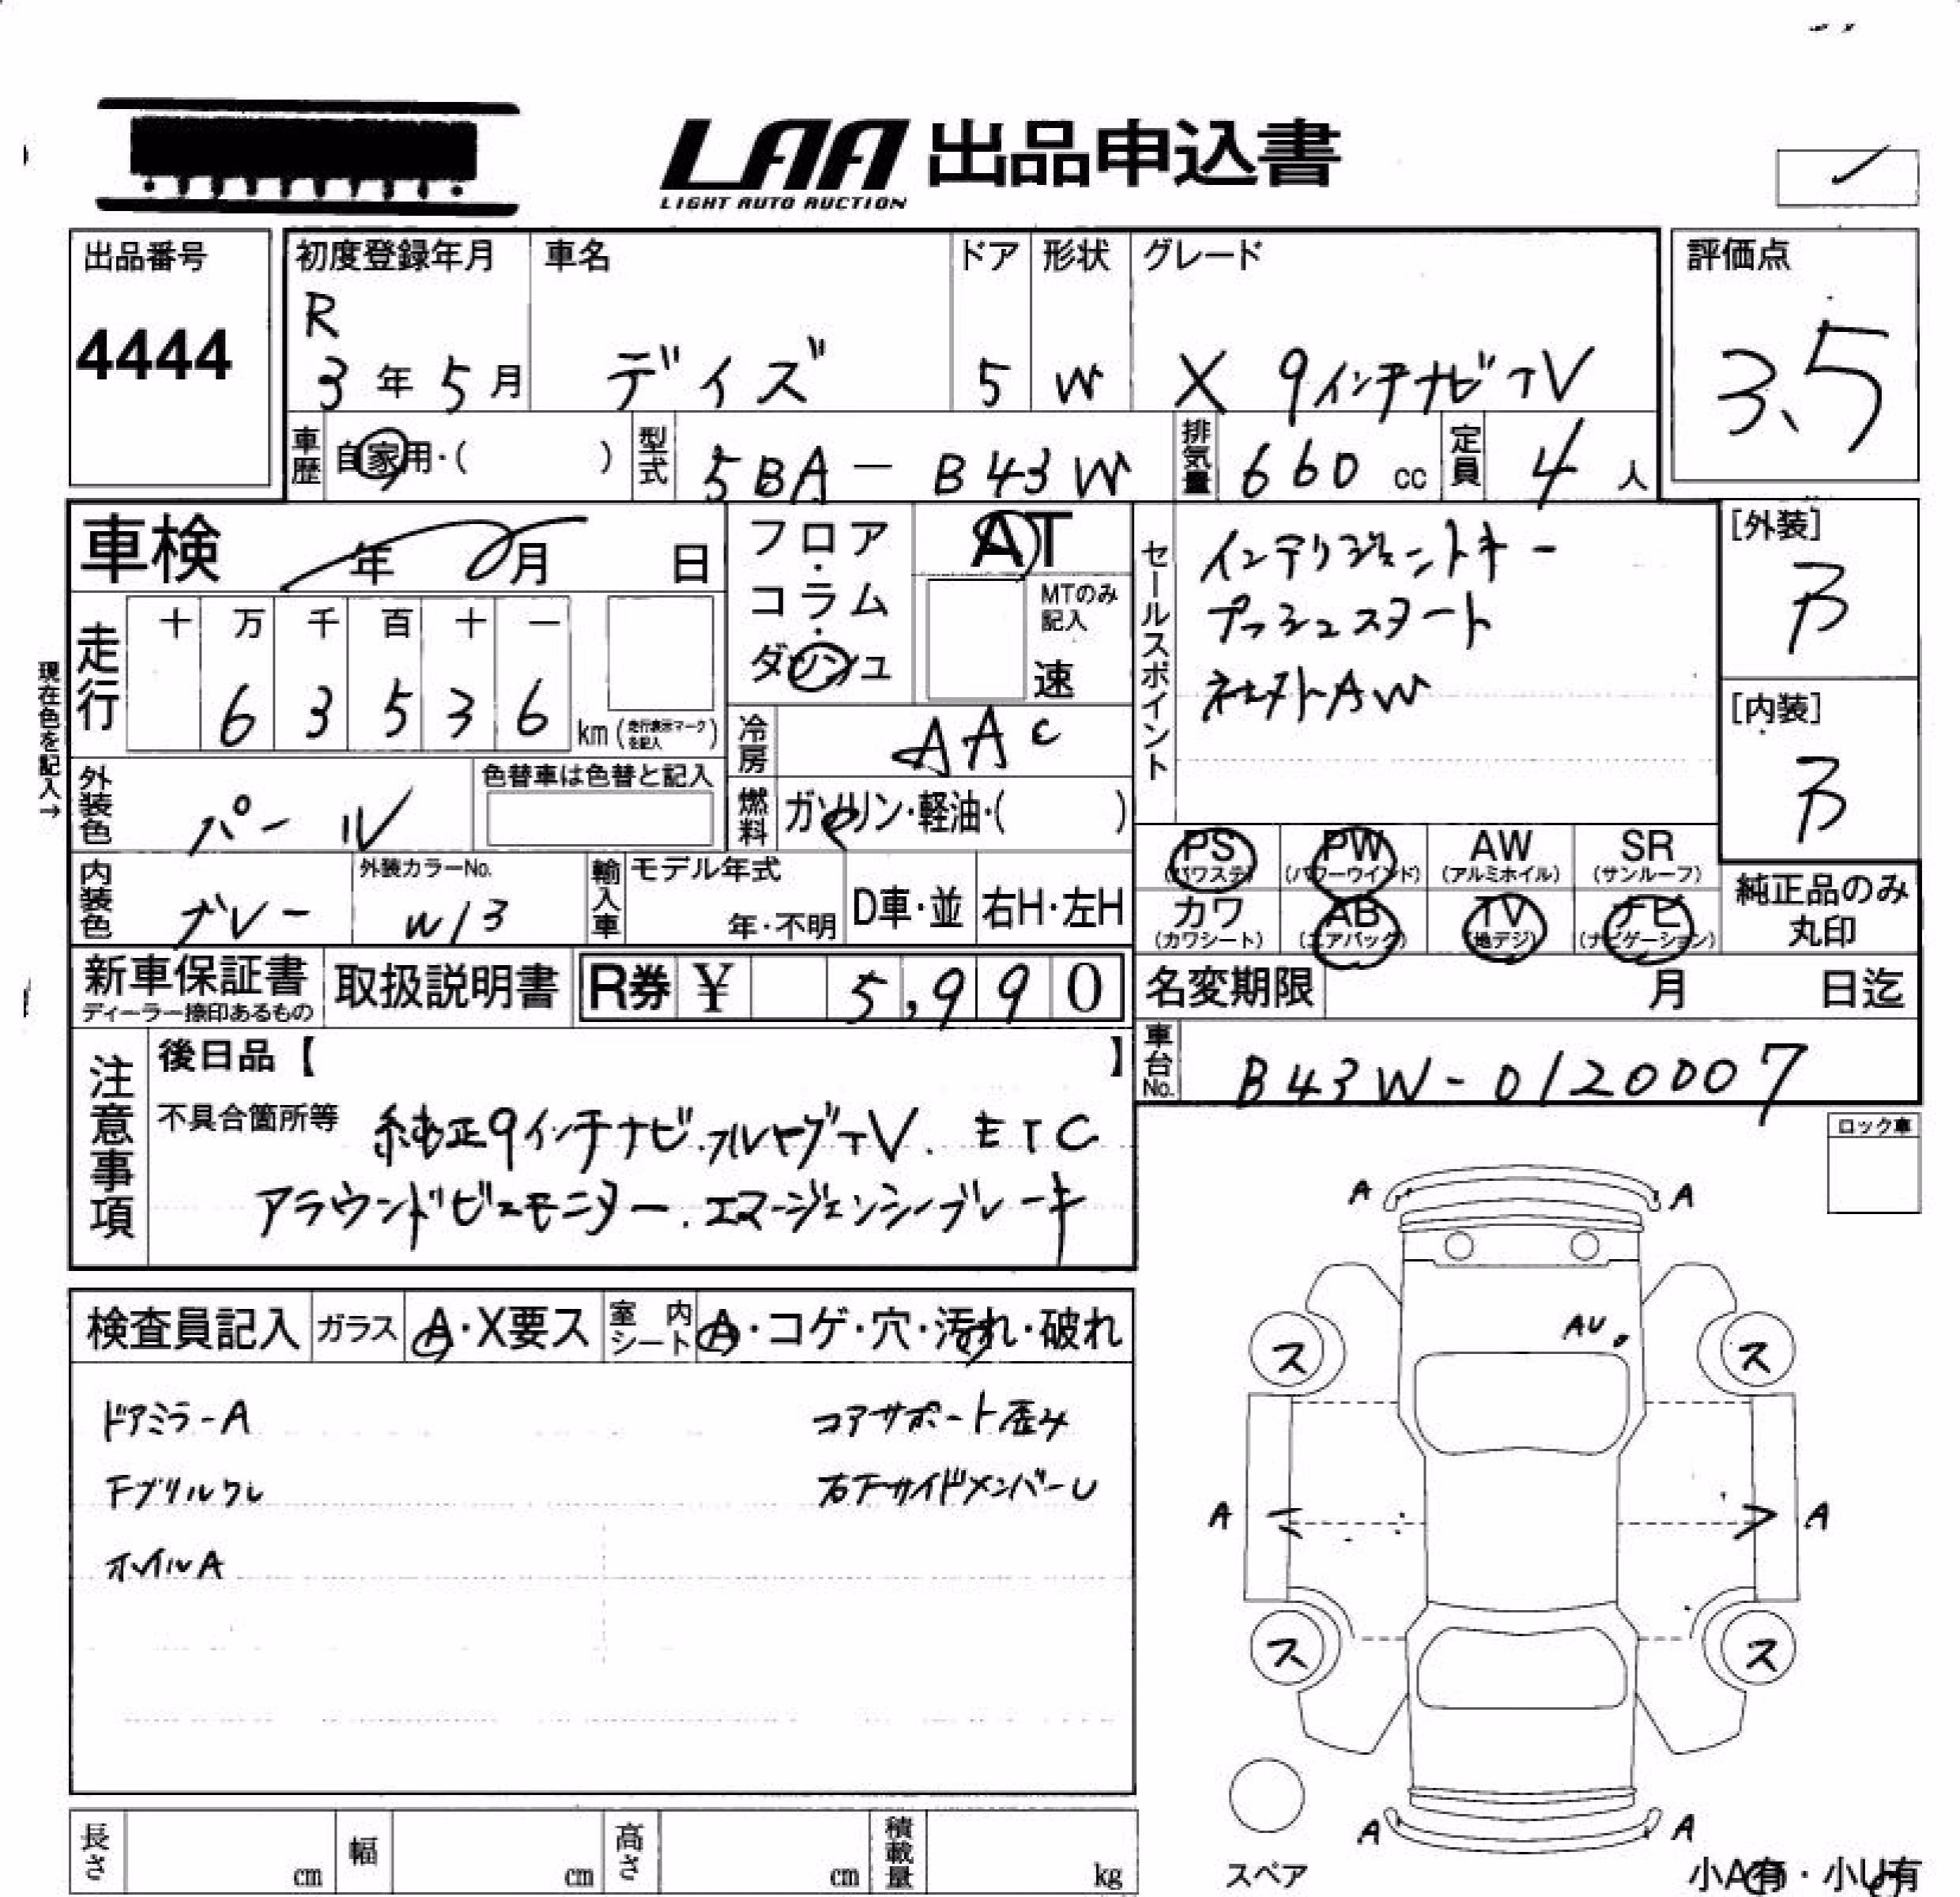 LAA 出品申込書
LIGHT AUTO AUCTION
出品番号
4444
初度登録年月
R
3年5月
車名
デイズ
ドア
5
形状
W
グレード
X 9インチナビTV
評価点
3.5
車歴
自家用・( )
型式
5BA-B43W
排気量
660 cc
定員
4人
車検 年 月 日
フロア・コラム・ダッシュ
AT
MTのみ記入
速
セールスポイント
インテリジェントキー
プッシュスタート
社外AW
[外装]
B
[内装]
B
現在色を記入→
走行
十 万 千 百 十 一
6 3 5 3 6
km(走行表示マークを記入)
冷房
AAC
外装色
パール
色替車は色替と記入
燃料
ガソリン・軽油・( )
内装色
グレー
外装カラーNo.
W13
輸入車
モデル年式
年・不明
D車・並
右H・左H
PS
(パワステ)
PW
(パワーウインド)
AW
(アルミホイル)
SR
(サンルーフ)
カワ
(カワシート)
AB
(エアバック)
TV
(地デジ)
ナビ
(ナビゲーション)
純正品のみ
丸印
新車保証書
ディーラー捺印あるもの
取扱説明書
R券 ¥ 5,990
名変期限 月 日迄
車台No.
B43W-0120007
注意事項
後日品【 】
不具合箇所等
純正9インチナビ.フルセグTV.ETC
アラウンドビューモニター.エマージェンシーブレーキ
ロック車
検査員記入
ガラス
A・X要ス
室内シート
A・コゲ・穴・汚れ・破れ
ドアミラーA
コアサポート歪み
Fグリルワレ
右FサイドメンバーU
ホイルA
A A
AU
ス ス
A A
ス ス
A A
スペア
小A有・小U有
長さ cm
幅 cm
高さ cm
積載量 kg